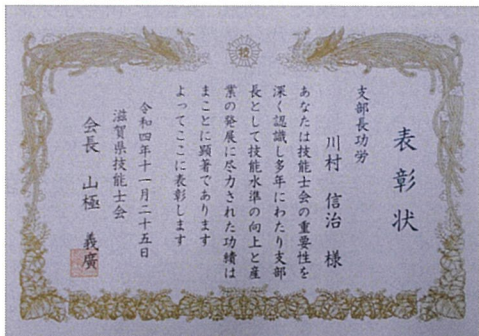 技
表彰状
支部長功労
川村 信治 様
あなたは技能士会の重要性を
深く認識し多年にわたり支部
長として技能水準の向上と産
業の発展に尽力された功績は
まことに顕著であります
よってここに表彰します
令和四年十一月二十五日
滋賀県技能士会
会長 山極 義廣